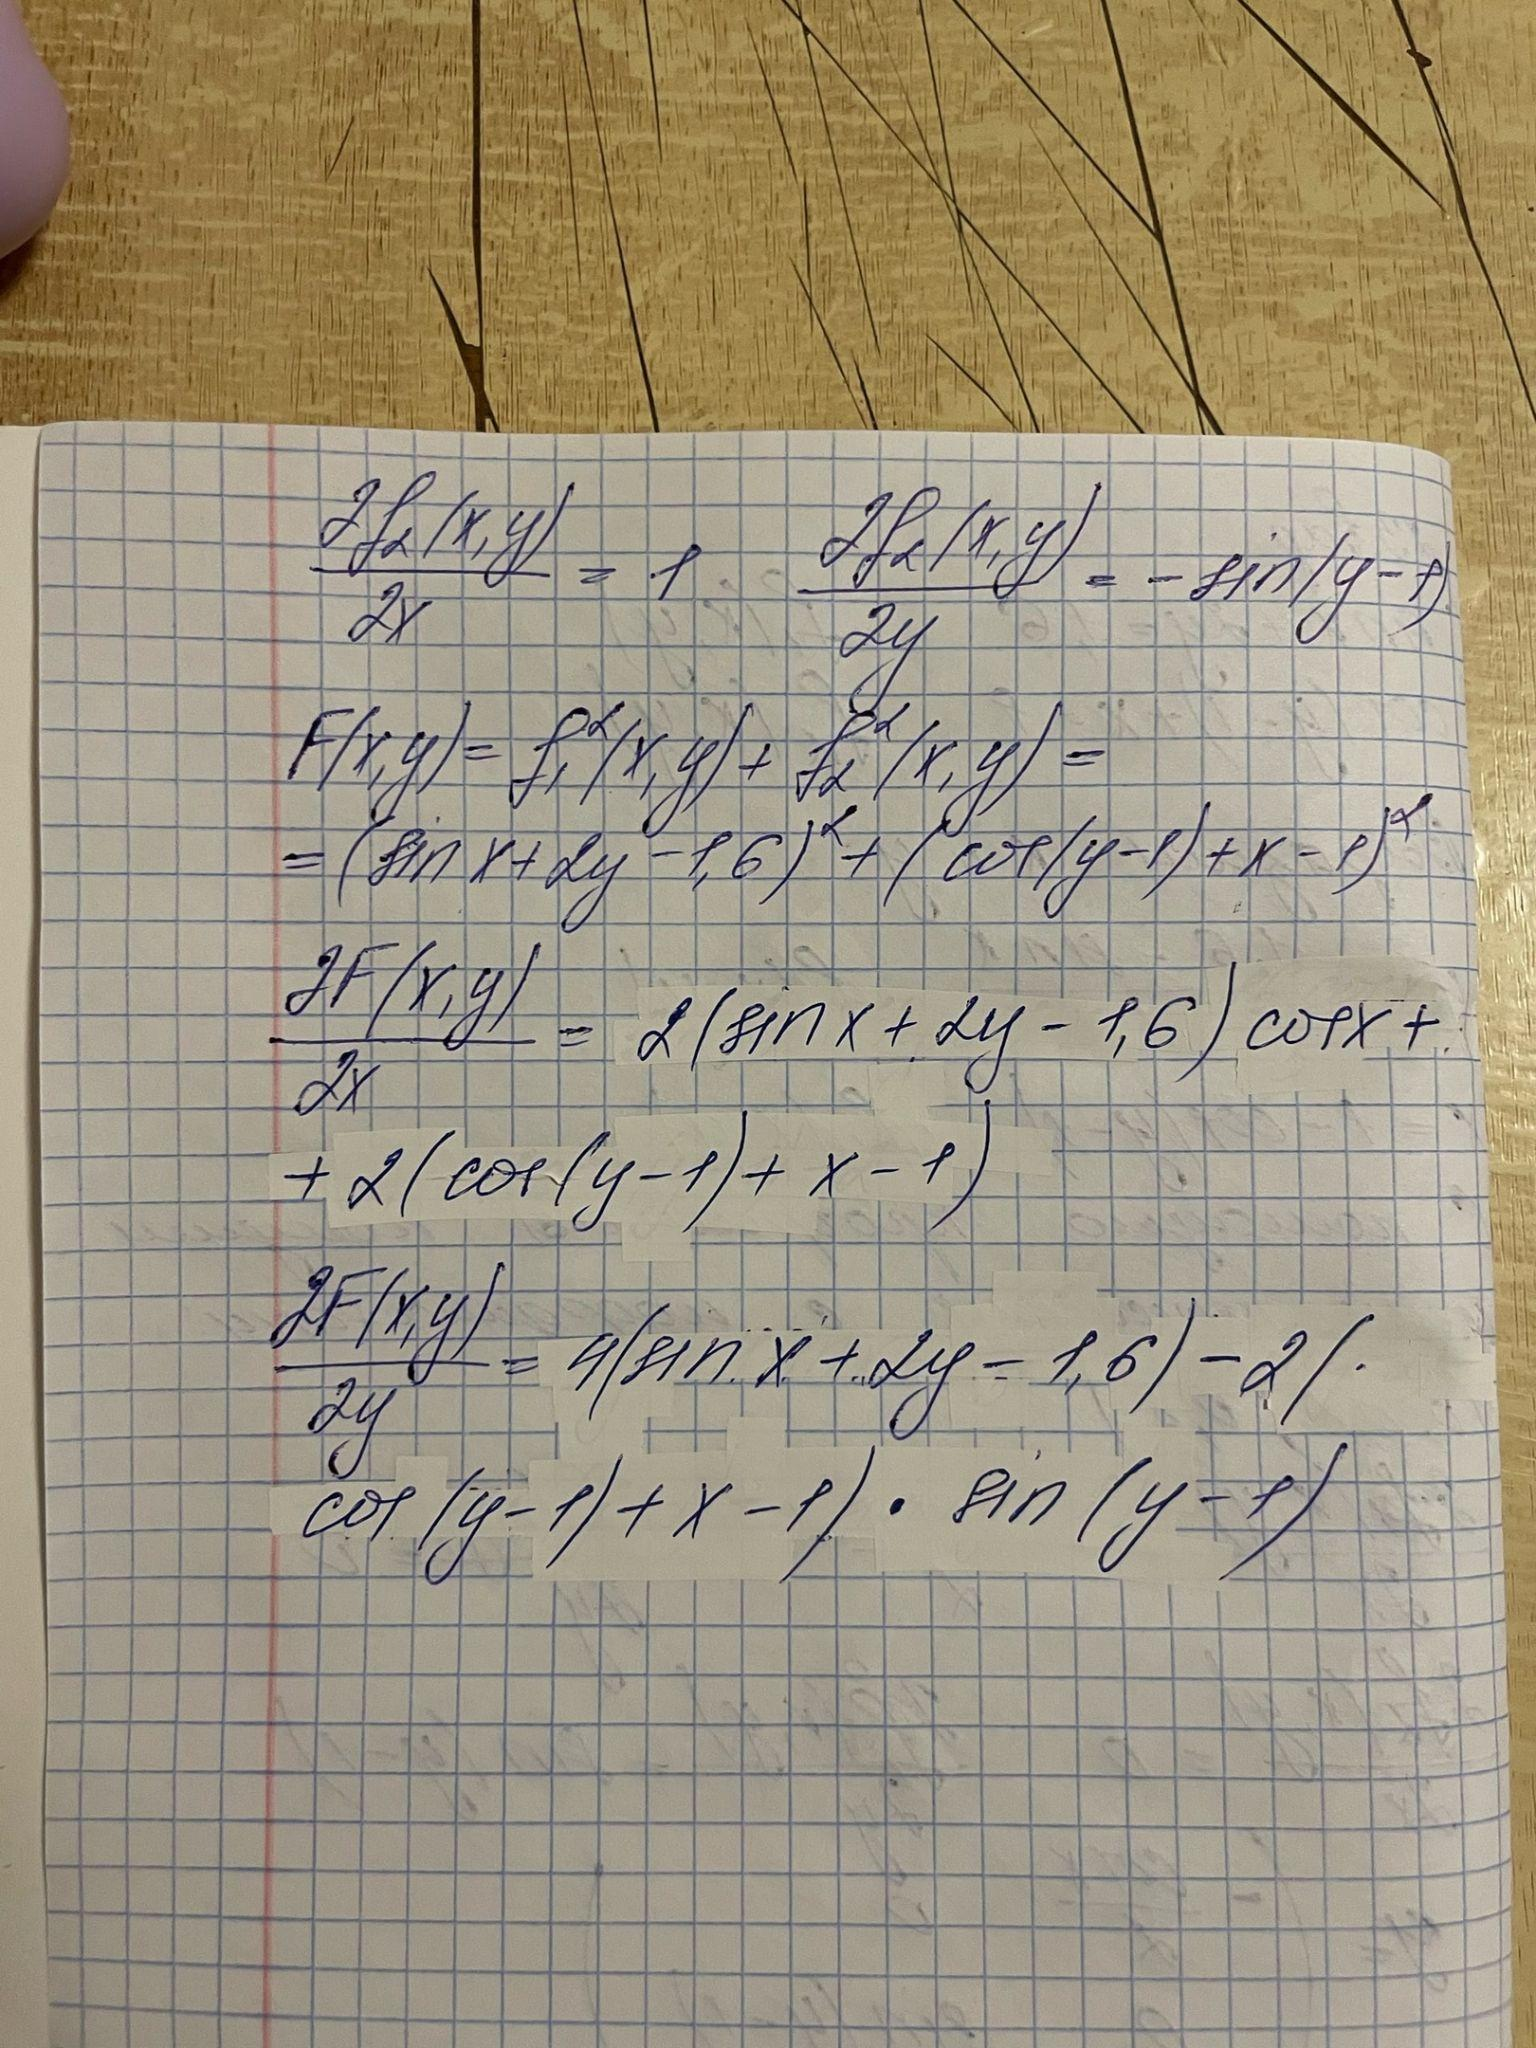 ∂f₂(x,y)/∂x = 1   ∂f₂(x,y)/∂y = -sin(y-1)
F(x,y) = f₁²(x,y) + f₂²(x,y) =
= (sin x + 2y - 1,6)² + (cos(y-1) + x - 1)²
∂F(x,y)/∂x = 2(sin x + 2y - 1,6) cos x +
+ 2(cos(y-1) + x - 1)
∂F(x,y)/∂y = 4(sin x + 2y - 1,6) - 2(·
cos(y-1) + x - 1) · sin(y-1)